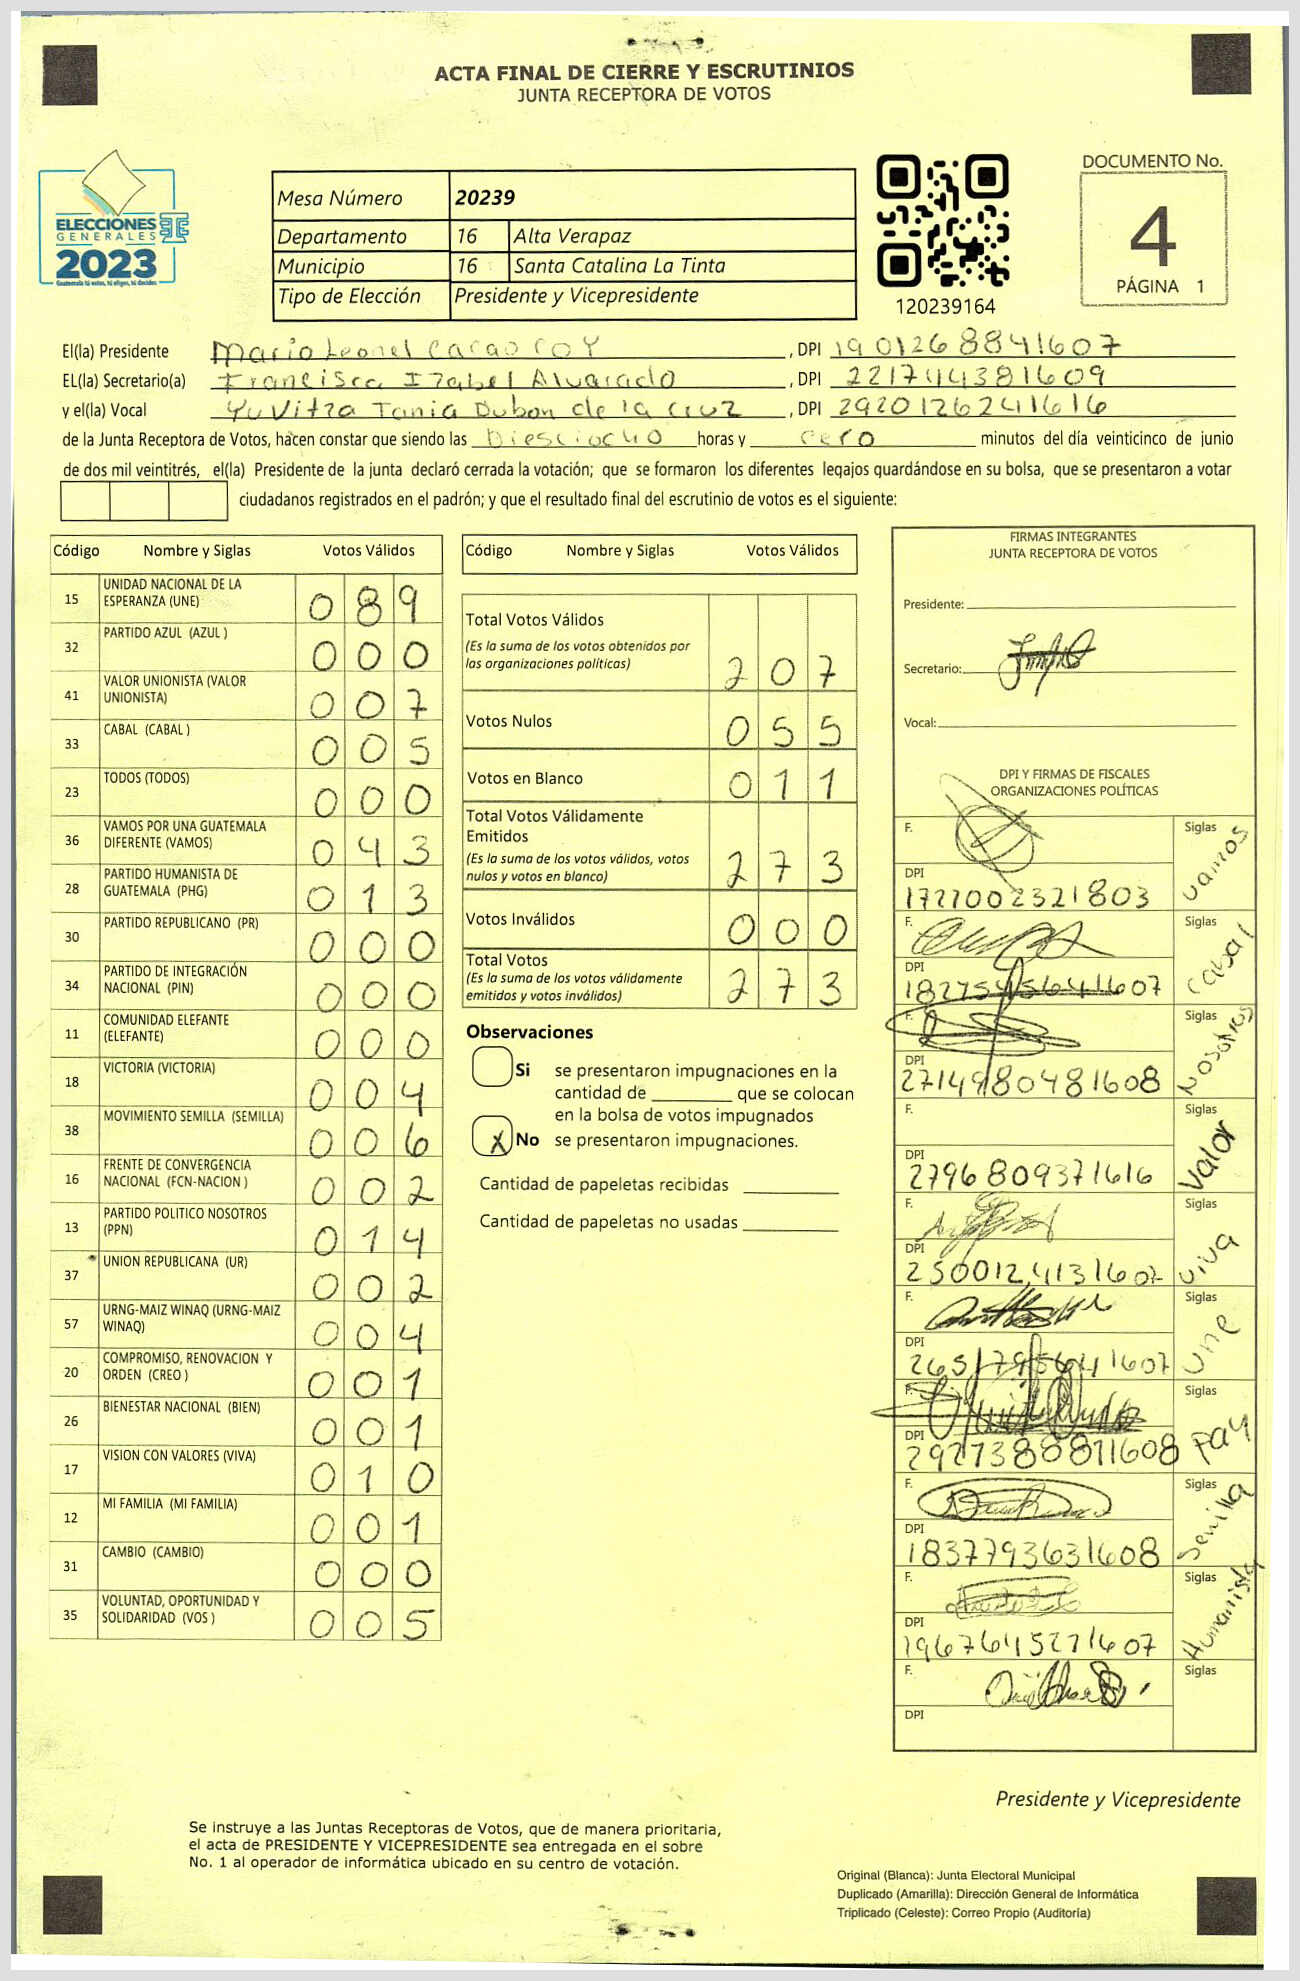 ACTA FINAL DE CIERRE Y ESCRUTINIOS
JUNTA RECEPTORA DE VOTOS
ELECCIONES
GENERALES
2023
Guatemala tú votas, tú eliges, tú decides
Mesa Número 20239
Departamento 16 Alta Verapaz
Municipio 16 Santa Catalina La Tinta
Tipo de Elección Presidente y Vicepresidente
120239164
DOCUMENTO No.
4
PÁGINA 1
El(la) Presidente Mario Leonel Cacao Coy, DPI 1901268841607
EL(la) Secretario(a) Francisca Izabel Alvarado, DPI 221744381609
y el(la) Vocal Yuvitza Tania Dubon de la Cruz, DPI 2920126241616
de la Junta Receptora de Votos, hacen constar que siendo las Diesciocho horas y cero minutos del día veinticinco de junio
de dos mil veintitrés, el(la) Presidente de la junta declaró cerrada la votación; que se formaron los diferentes legajos guardándose en su bolsa, que se presentaron a votar
ciudadanos registrados en el padrón; y que el resultado final del escrutinio de votos es el siguiente:
Código Nombre y Siglas Votos Válidos
15 UNIDAD NACIONAL DE LA ESPERANZA (UNE) 089
32 PARTIDO AZUL (AZUL ) 000
41 VALOR UNIONISTA (VALOR UNIONISTA) 007
33 CABAL (CABAL ) 005
23 TODOS (TODOS) 000
36 VAMOS POR UNA GUATEMALA DIFERENTE (VAMOS) 043
28 PARTIDO HUMANISTA DE GUATEMALA (PHG) 013
30 PARTIDO REPUBLICANO (PR) 000
34 PARTIDO DE INTEGRACIÓN NACIONAL (PIN) 000
11 COMUNIDAD ELEFANTE (ELEFANTE) 000
18 VICTORIA (VICTORIA) 004
38 MOVIMIENTO SEMILLA (SEMILLA) 006
16 FRENTE DE CONVERGENCIA NACIONAL (FCN-NACION ) 002
13 PARTIDO POLITICO NOSOTROS (PPN) 014
37 UNION REPUBLICANA (UR) 002
57 URNG-MAIZ WINAQ (URNG-MAIZ WINAQ) 004
20 COMPROMISO, RENOVACION Y ORDEN (CREO ) 001
26 BIENESTAR NACIONAL (BIEN) 001
17 VISION CON VALORES (VIVA) 010
12 MI FAMILIA (MI FAMILIA) 001
31 CAMBIO (CAMBIO) 000
35 VOLUNTAD, OPORTUNIDAD Y SOLIDARIDAD (VOS ) 005
Código Nombre y Siglas Votos Válidos
Total Votos Válidos
(Es la suma de los votos obtenidos por
las organizaciones políticas) 207
Votos Nulos 055
Votos en Blanco 011
Total Votos Válidamente
Emitidos
(Es la suma de los votos válidos, votos
nulos y votos en blanco) 273
Votos Inválidos 000
Total Votos
(Es la suma de los votos válidamente
emitidos y votos inválidos) 273
Observaciones
Si se presentaron impugnaciones en la
cantidad de ________ que se colocan
en la bolsa de votos impugnados
X No se presentaron impugnaciones.
Cantidad de papeletas recibidas
Cantidad de papeletas no usadas
FIRMAS INTEGRANTES
JUNTA RECEPTORA DE VOTOS
Presidente:
Secretario:
Vocal:
DPI Y FIRMAS DE FISCALES
ORGANIZACIONES POLÍTICAS
F. Siglas Vamos
DPI 1727002321803
F. Siglas Cabal
DPI
F. Siglas Nosotros
DPI 2714980481608
F. Siglas Valor
DPI 2796809371616
F. Siglas Viva
DPI 2500124131607
F. Siglas Une
DPI
F. Siglas Pay
DPI
F. Siglas Semilla
DPI 1837793631608
F. Siglas Humanista
DPI 1967645271607
F. Siglas
DPI
Presidente y Vicepresidente
Se instruye a las Juntas Receptoras de Votos, que de manera prioritaria,
el acta de PRESIDENTE Y VICEPRESIDENTE sea entregada en el sobre
No. 1 al operador de informática ubicado en su centro de votación.
Original (Blanca): Junta Electoral Municipal
Duplicado (Amarilla): Dirección General de Informática
Triplicado (Celeste): Correo Propio (Auditoría)